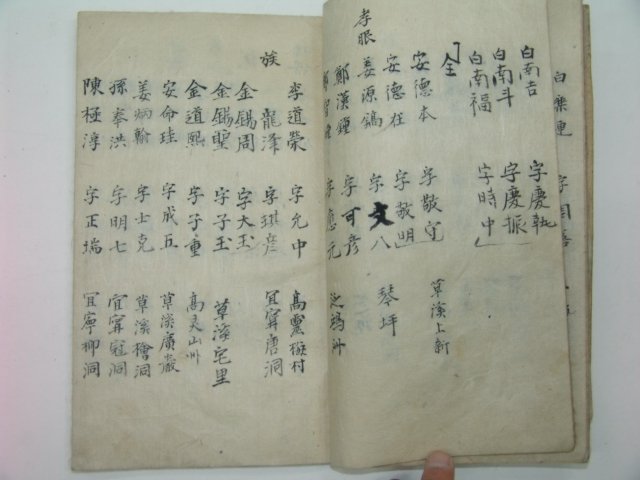 白南吉 字慶執
白南斗 字慶振
白南福 字時中
全
安德本 字敬守 草溪上新
安德在 字敬明
姜源鎬 字文八 琴坪
孝眠
鄭漢鍾 字可彦
字應元
李道榮 字允中 高靈 村
族 龍澤 字琪彦 宜寧唐洞
金錫周 字大玉
金錫聖 字子玉 草溪宅里
金道熙 字子重 高灵山州
安命珪 字成五 草溪廣巖
姜炳翰 字士克 草溪檜洞
孫奉洪 字明七 宜寧冠洞
陳極淳 字正瑞 宜寧柳洞